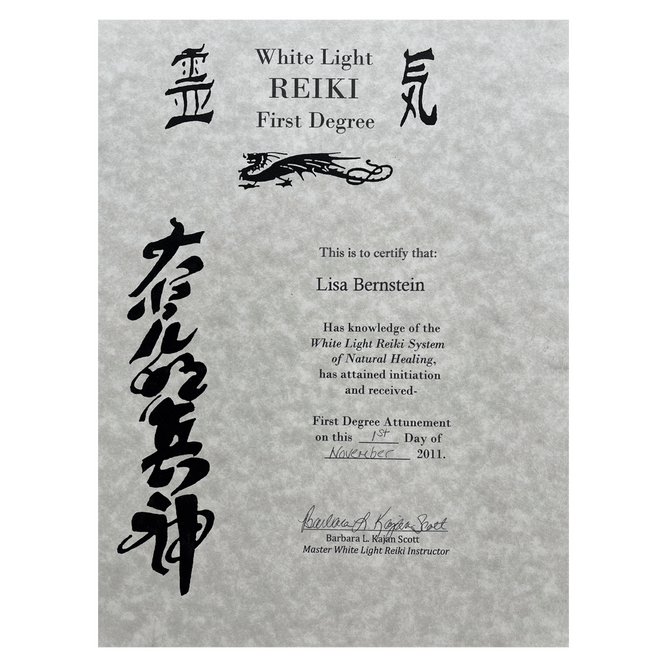 霊 気
White Light
REIKI
First Degree
兵神
This is to certify that:
Lisa Bernstein
Has knowledge of the
White Light Reiki System
of Natural Healing,
has attained initiation
and received-
First Degree Attunement
on this 1st Day of
November 2011.
Barbara L Kajan Scott
Barbara L. Kajan Scott
Master White Light Reiki Instructor